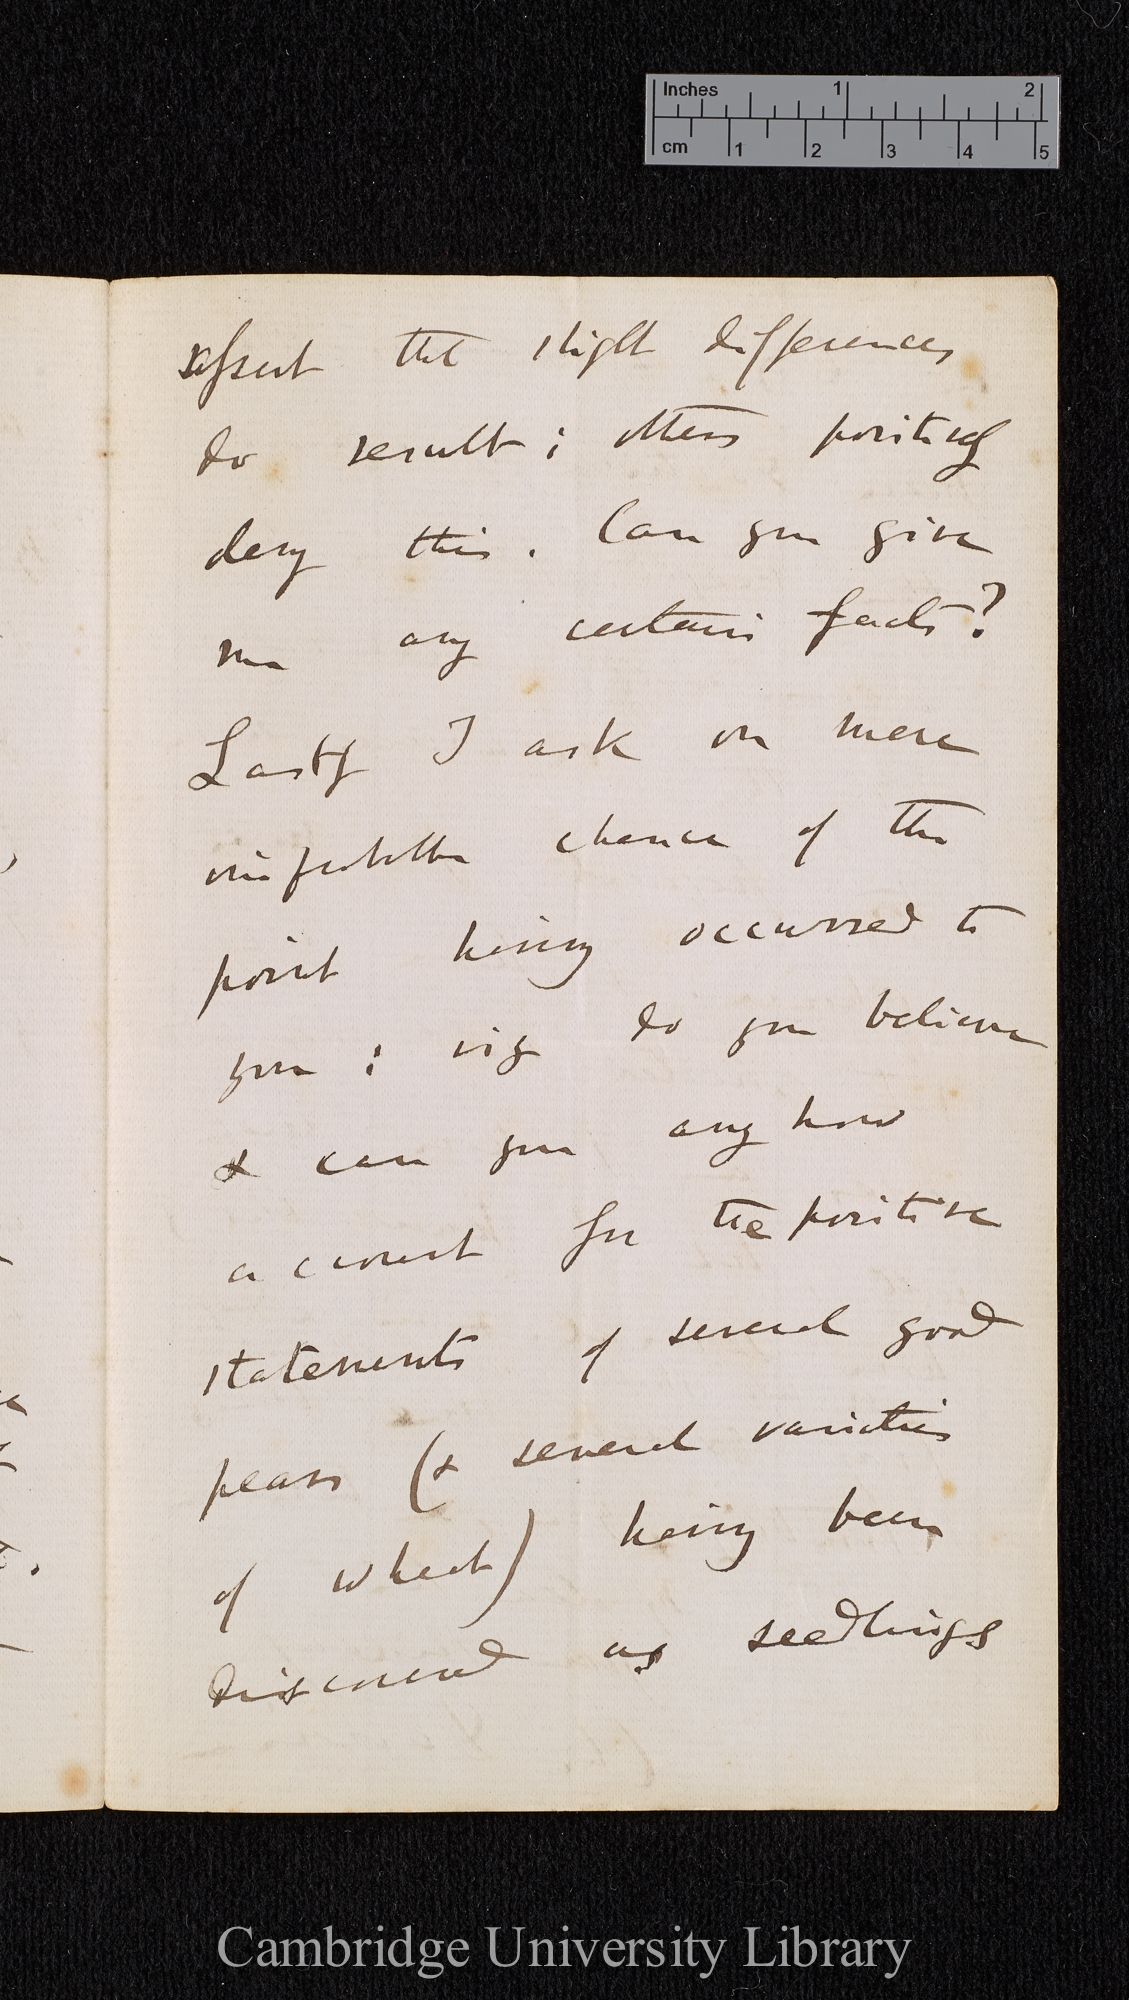 Inches 1 2
cm 1 2 3 4 5
assert that slight differences
do result; others positively
deny this. Can you give
me any certain facts?
Lastly I ask on mere
improbable chance of the
point having occurred to
you: viz do you believe
& can you anyhow
account for the positive
statements of several good
pears (& several varieties
of wheat) having been
discovered as seedlings
Cambridge University Library